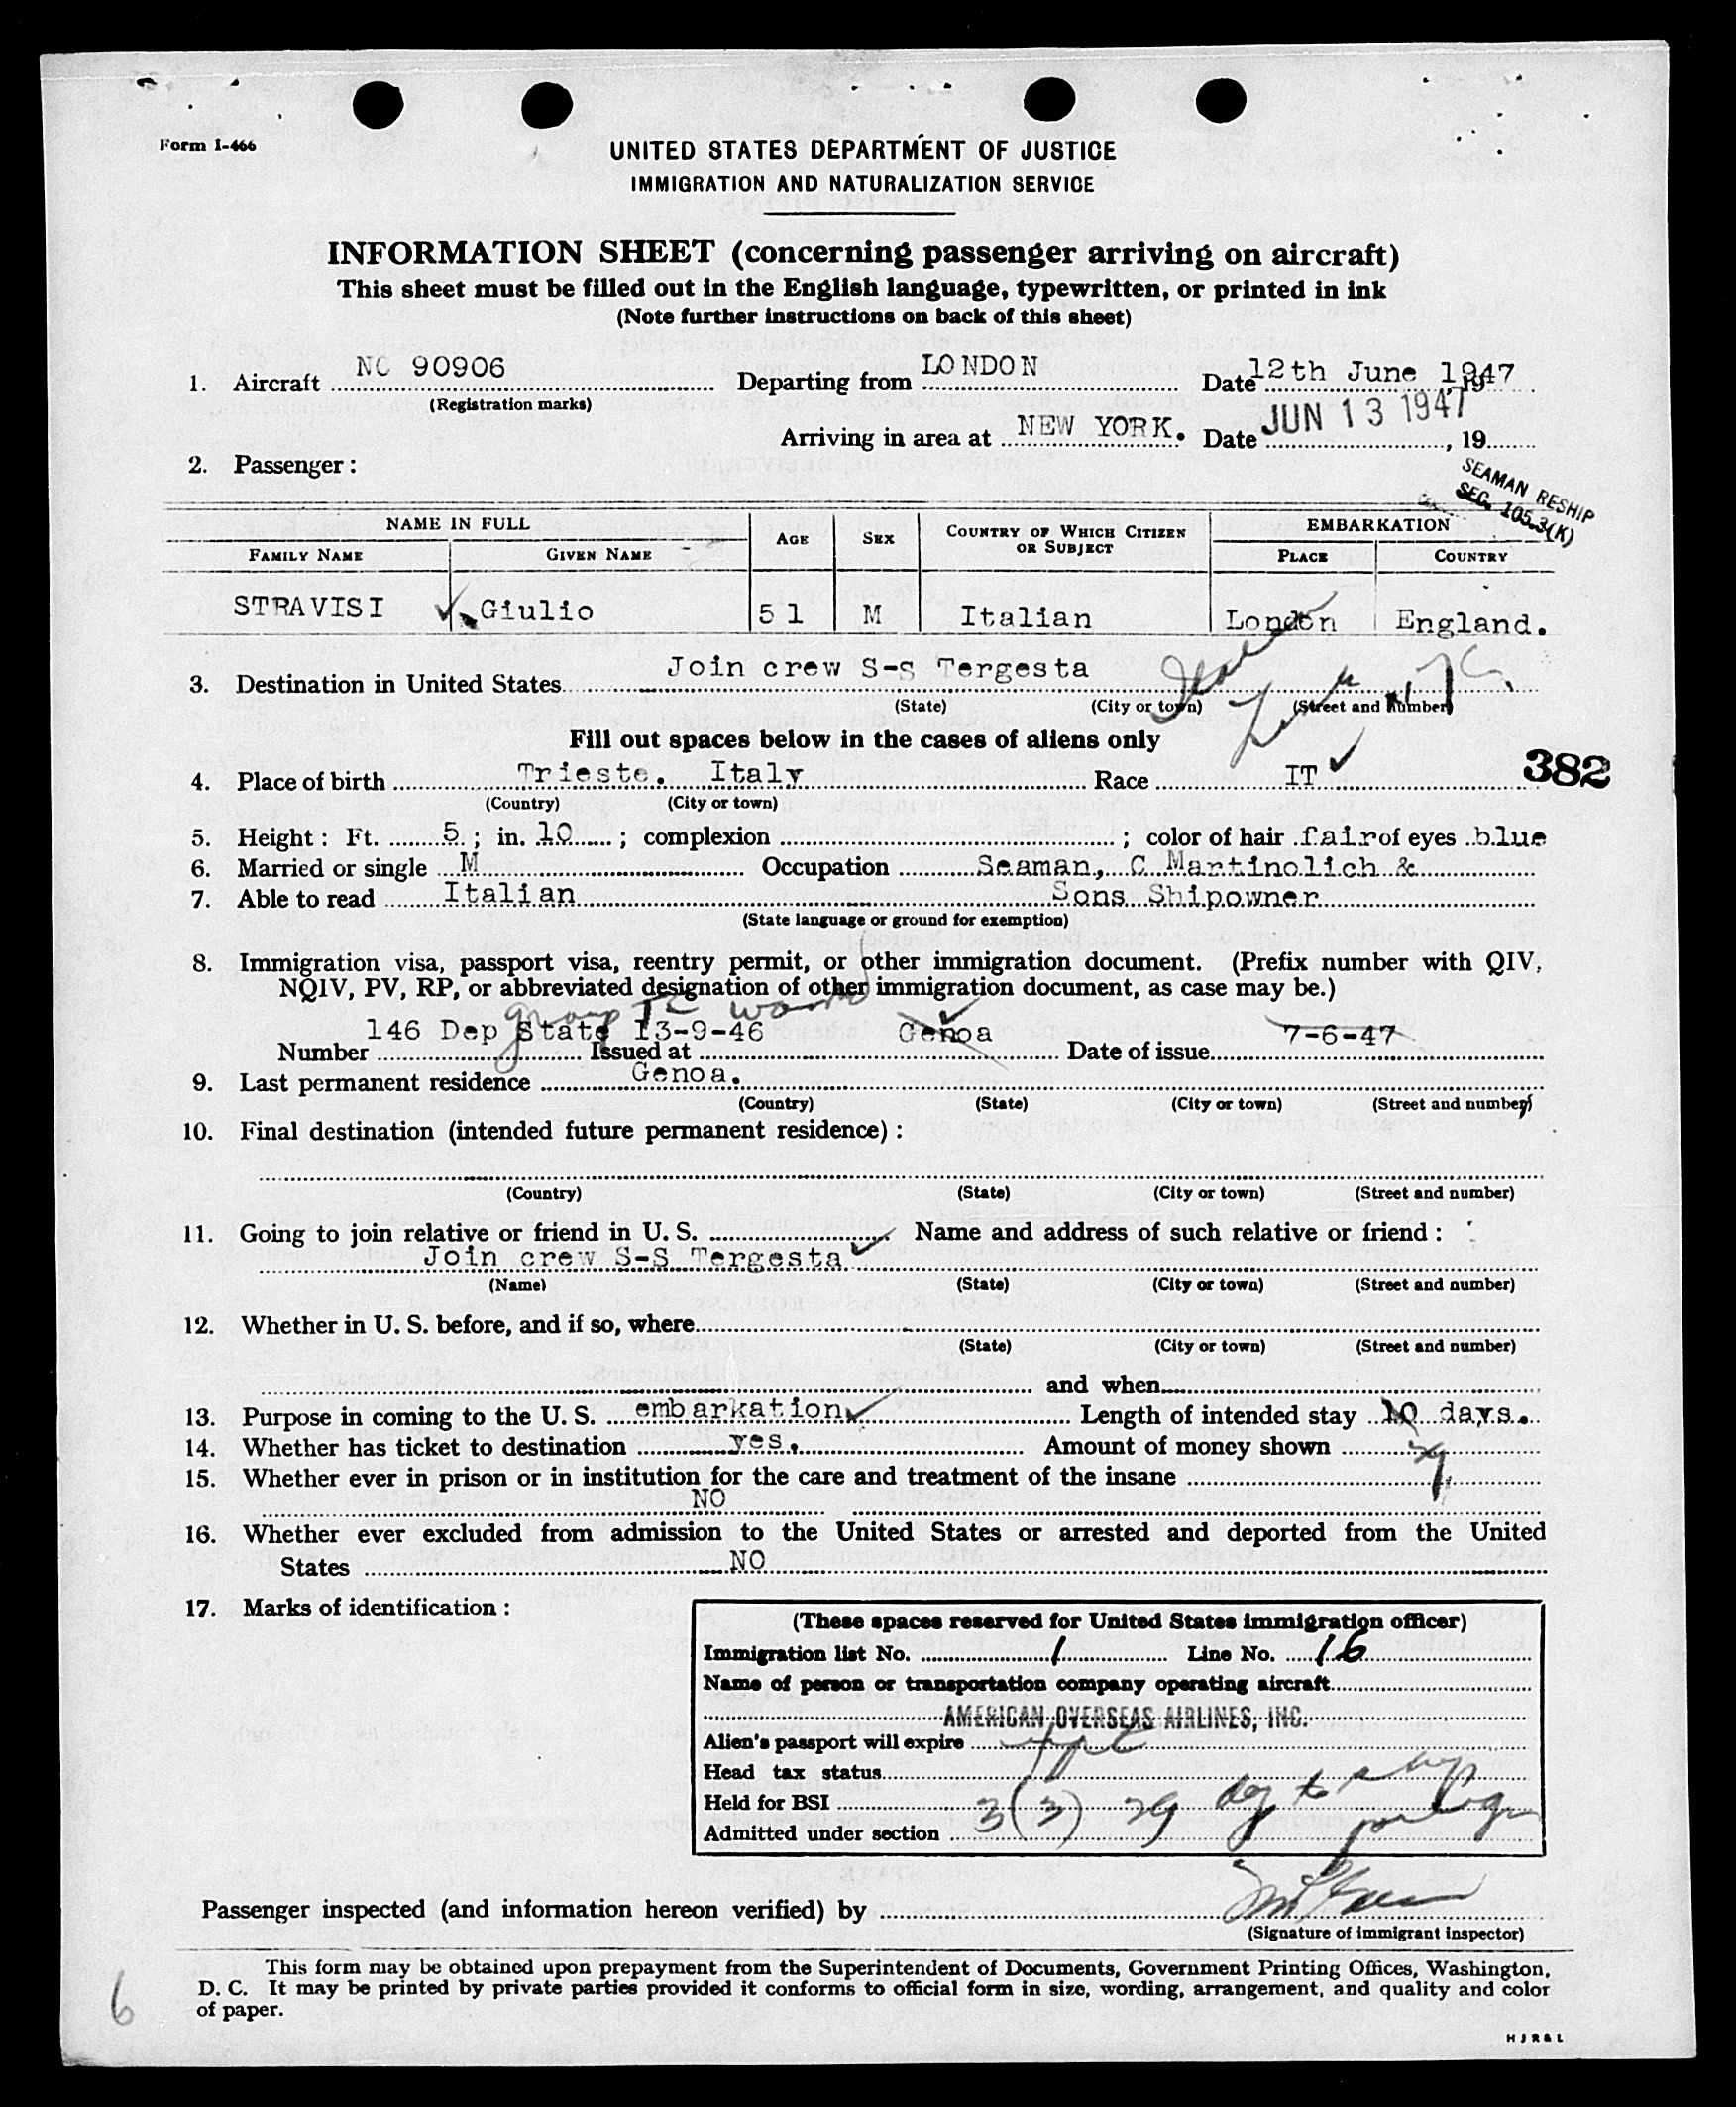 Form I-466
UNITED STATES DEPARTMENT OF JUSTICE
IMMIGRATION AND NATURALIZATION SERVICE
INFORMATION SHEET (concerning passenger arriving on aircraft)
This sheet must be filled out in the English language, typewritten, or printed in ink
(Note further instructions on back of this sheet)
1. Aircraft NC 90906 Departing from LONDON Date 12th June 1947, 19
(Registration marks)
Arriving in area at NEW YORK. Date JUN 13 1947, 19
2. Passenger:
SEAMAN RESHIP
SEC. 105.3(K)
NAME IN FULL EMBARKATION
FAMILY NAME GIVEN NAME AGE SEX COUNTRY OF WHICH CITIZEN OR SUBJECT PLACE COUNTRY
STRAVISI Giulio 51 M Italian London England.
3. Destination in United States Join crew S-S Tergesta
(State) (City or town) (Street and number)
Fill out spaces below in the cases of aliens only
382
4. Place of birth Trieste. Italy Race IT
(Country) (City or town)
5. Height: Ft. 5; in. 10; complexion ; color of hair fair of eyes blue
6. Married or single M Occupation Seaman, C Martinolich &
7. Able to read Italian Sons Shipowner
(State language or ground for exemption)
8. Immigration visa, passport visa, reentry permit, or other immigration document. (Prefix number with QIV,
NQIV, PV, RP, or abbreviated designation of other immigration document, as case may be.)
group
146 Dep State 13-9-46 Genoa 7-6-47
Number Issued at Date of issue
9. Last permanent residence Genoa.
(Country) (State) (City or town) (Street and number)
10. Final destination (intended future permanent residence):
(Country) (State) (City or town) (Street and number)
11. Going to join relative or friend in U. S. Name and address of such relative or friend:
Join crew S-S Tergesta
(Name) (State) (City or town) (Street and number)
12. Whether in U. S. before, and if so, where
(State) (City or town) (Street and number)
and when
13. Purpose in coming to the U. S. embarkation Length of intended stay 10 days.
14. Whether has ticket to destination yes. Amount of money shown
29
15. Whether ever in prison or in institution for the care and treatment of the insane
NO
16. Whether ever excluded from admission to the United States or arrested and deported from the United
States NO
17. Marks of identification:
(These spaces reserved for United States immigration officer)
Immigration list No. 1 Line No. 16
Name of person or transportation company operating aircraft
AMERICAN OVERSEAS AIRLINES, INC.
Alien's passport will expire
Head tax status
Held for BSI
Admitted under section 3(3) 29 dy to
Passenger inspected (and information hereon verified) by
(Signature of immigrant inspector)
This form may be obtained upon prepayment from the Superintendent of Documents, Government Printing Offices, Washington,
D. C. It may be printed by private parties provided it conforms to official form in size, wording, arrangement, and quality and color
of paper.
6
H J R & L